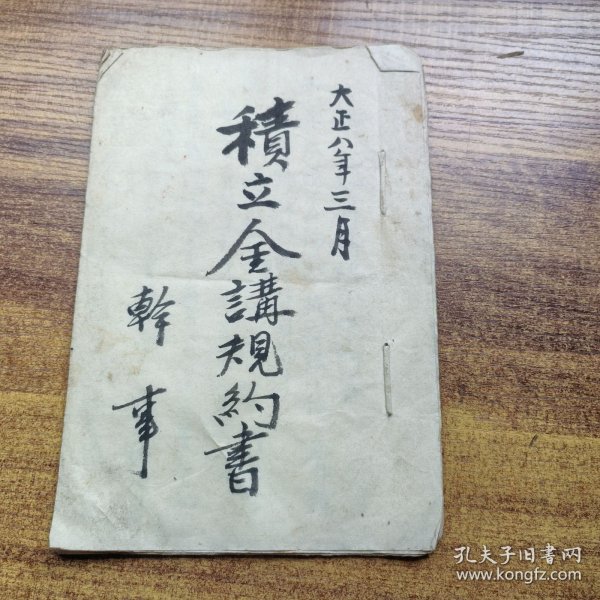 大正八年三月
積立金講規約書
幹事
孔夫子旧书网
www.kongfz.com